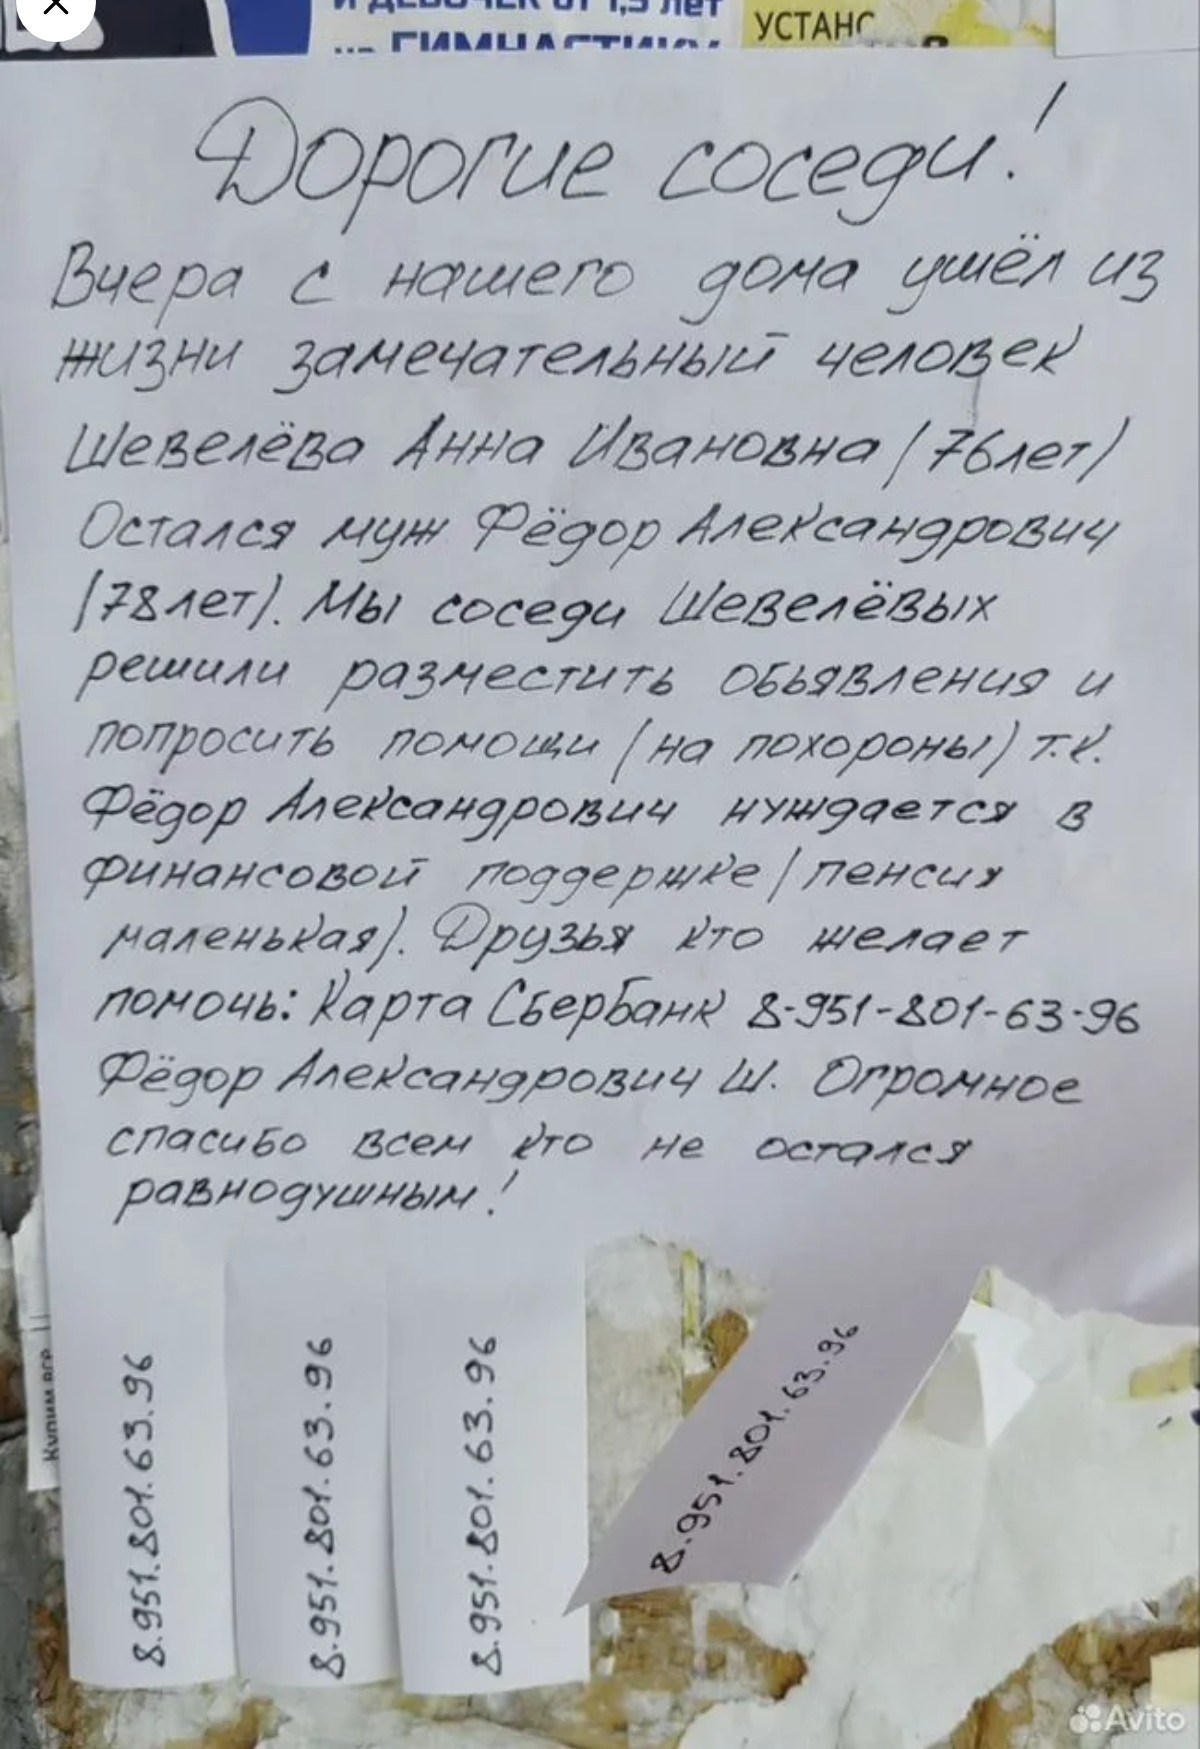 и девочек от 1,5 лет
на ГИМНАСТИКУ
УСТАНС
Дорогие соседи!
Вчера с нашего дома ушёл из
жизни замечательный человек
Шевелёва Анна Ивановна (76лет)
Остался муж Фёдор Александрович
(78лет). Мы соседи Шевелёвых
решили разместить обьявления и
попросить помощи (на похороны) т.к.
Фёдор Александрович нуждается в
финансовой поддержке (пенсия
маленькая). Друзья кто желает
помочь: Карта Сбербанк 8-951-801-63-96
Фёдор Александрович Ш. Огромное
спасибо всем кто не остался
равнодушным!
8.951.801.63.96
8.951.801.63.96
8.951.801.63.96
8.951.801.63.96
Купим все
Avito